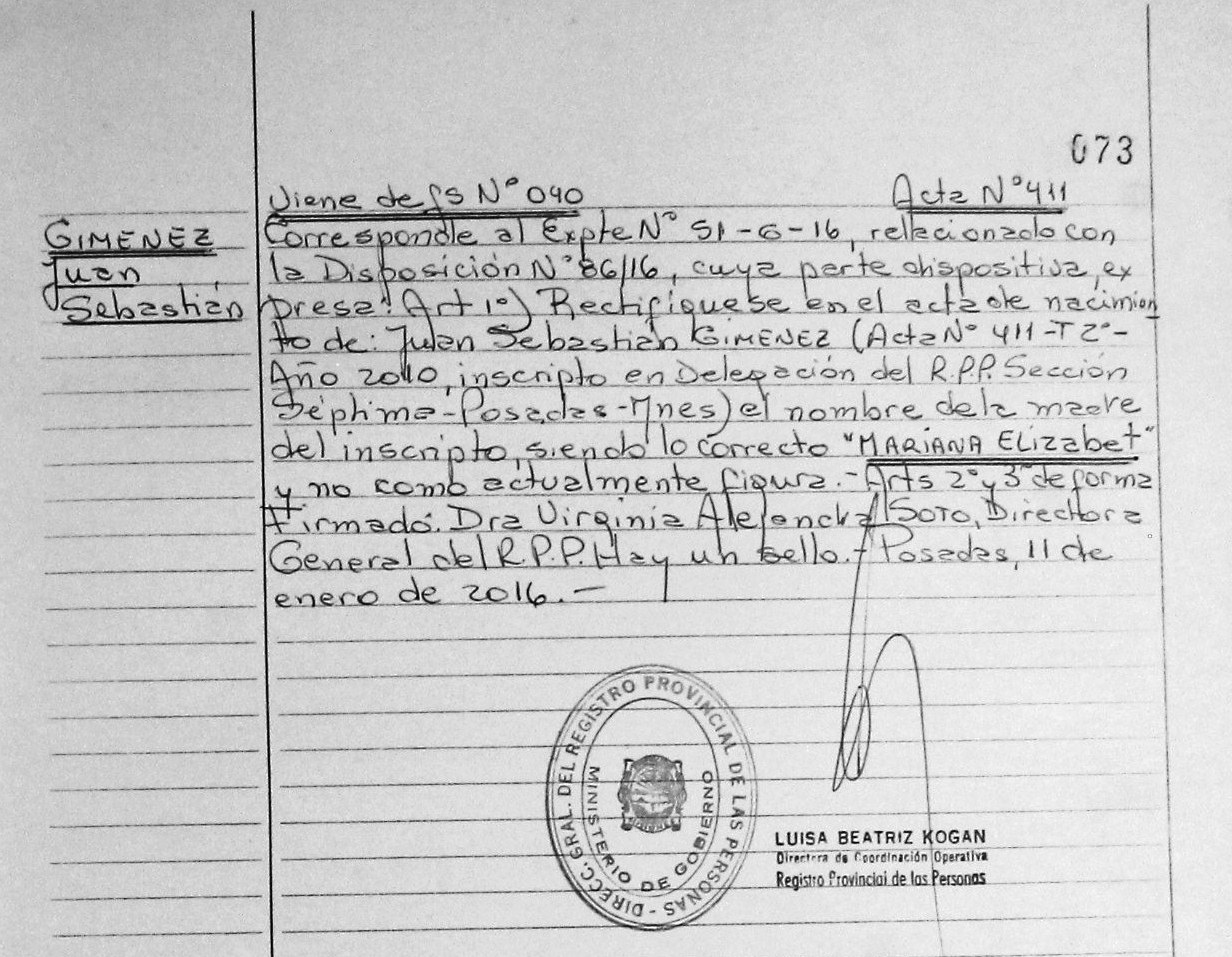 073
Viene de fs N° 040
Acta N° 411
GIMENEZ
Juan
Sebastián
Corresponde al Expte N° 51-G-16, relacionado con
la Disposición N° 86/16, cuya parte dispositiva, ex
presa: Art 1°) Rectifíquese en el acta de nacimien
to de: Juan Sebastián GIMENEZ (Acta N° 411-T 2°-
Año 2010, inscripto en Delegación del R.P.P. Sección
Séptima-Posadas-Mnes) el nombre de la madre
del inscripto, siendo lo correcto "MARIANA ELIZABET"
y no como actualmente figura.- Arts 2° y 3° de forma
Firmado. Dra Virginia Alejandra SOTO, Directora
General del R.P.P. Hay un sello.- Posadas, 11 de
enero de 2016.-
DIRECC. GRAL. DEL REGISTRO PROVINCIAL DE LAS PERSONAS -
MINISTERIO DE GOBIERNO
LUISA BEATRIZ KOGAN
Directora de Coordinación Operativa
Registro Provincial de las Personas